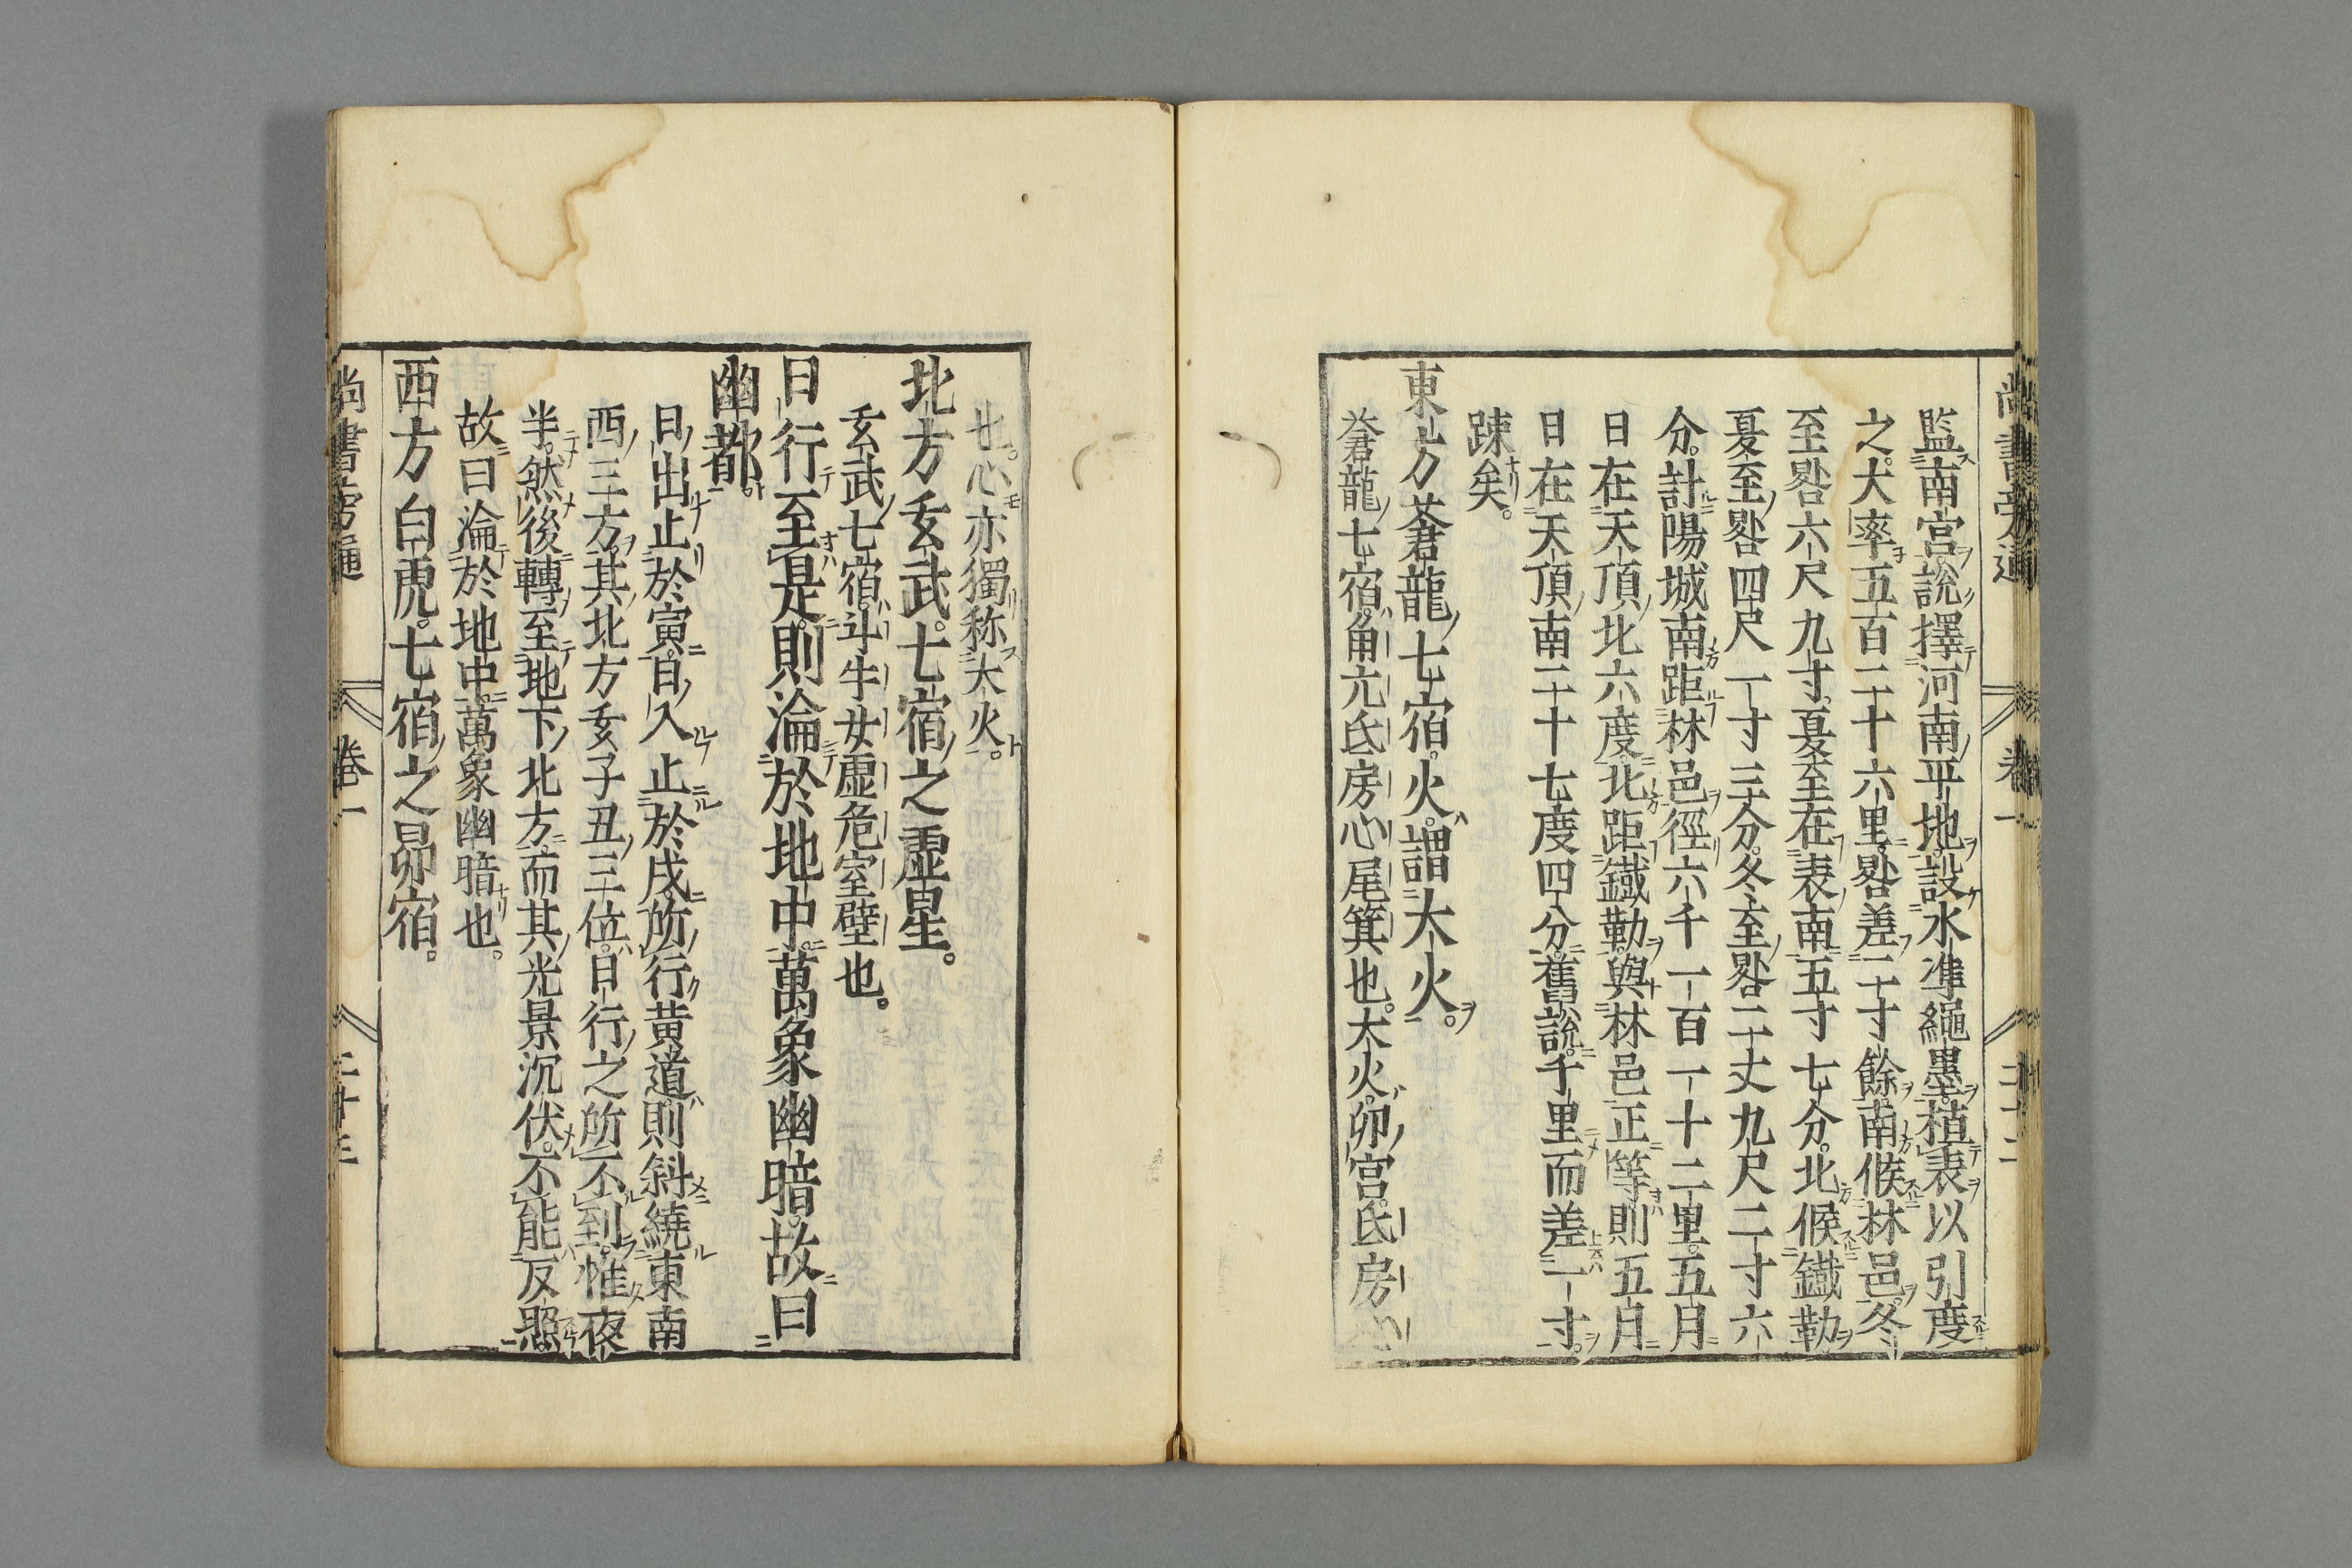 監南宮說擇河南平地設水準繩墨植表以引度
之大率五百二十六里晷差二寸餘南候林邑冬
至晷六尺九寸夏至在表南五寸七分北候鐵勒
夏至晷四尺一寸三分冬至晷二丈九尺二寸六
分計陽城南距林邑徑六千一百一十二里五月
日在天頂北六度北距鐵勒與林邑正等則五月
日在天頂南二十七度四分舊說千里而差一寸
踈矣
東方蒼龍七宿火謂大火
蒼龍七宿角亢氐房心尾箕也大火卯宮氐房心
也心亦獨称大火
北方玄武七宿之虛星
玄武七宿斗牛女虛危室壁也
日行至是則淪於地中萬象幽暗故曰
幽都
日出止於寅日入止於戌所行黃道則斜繞東南
西三方其北方亥子丑三位日行之所不到惟夜
半然後轉至地下北方而其光景沉伏不能反照
故曰淪於地中萬象幽暗也
西方白虎七宿之昴宿
尚書旁通 卷一 二十三